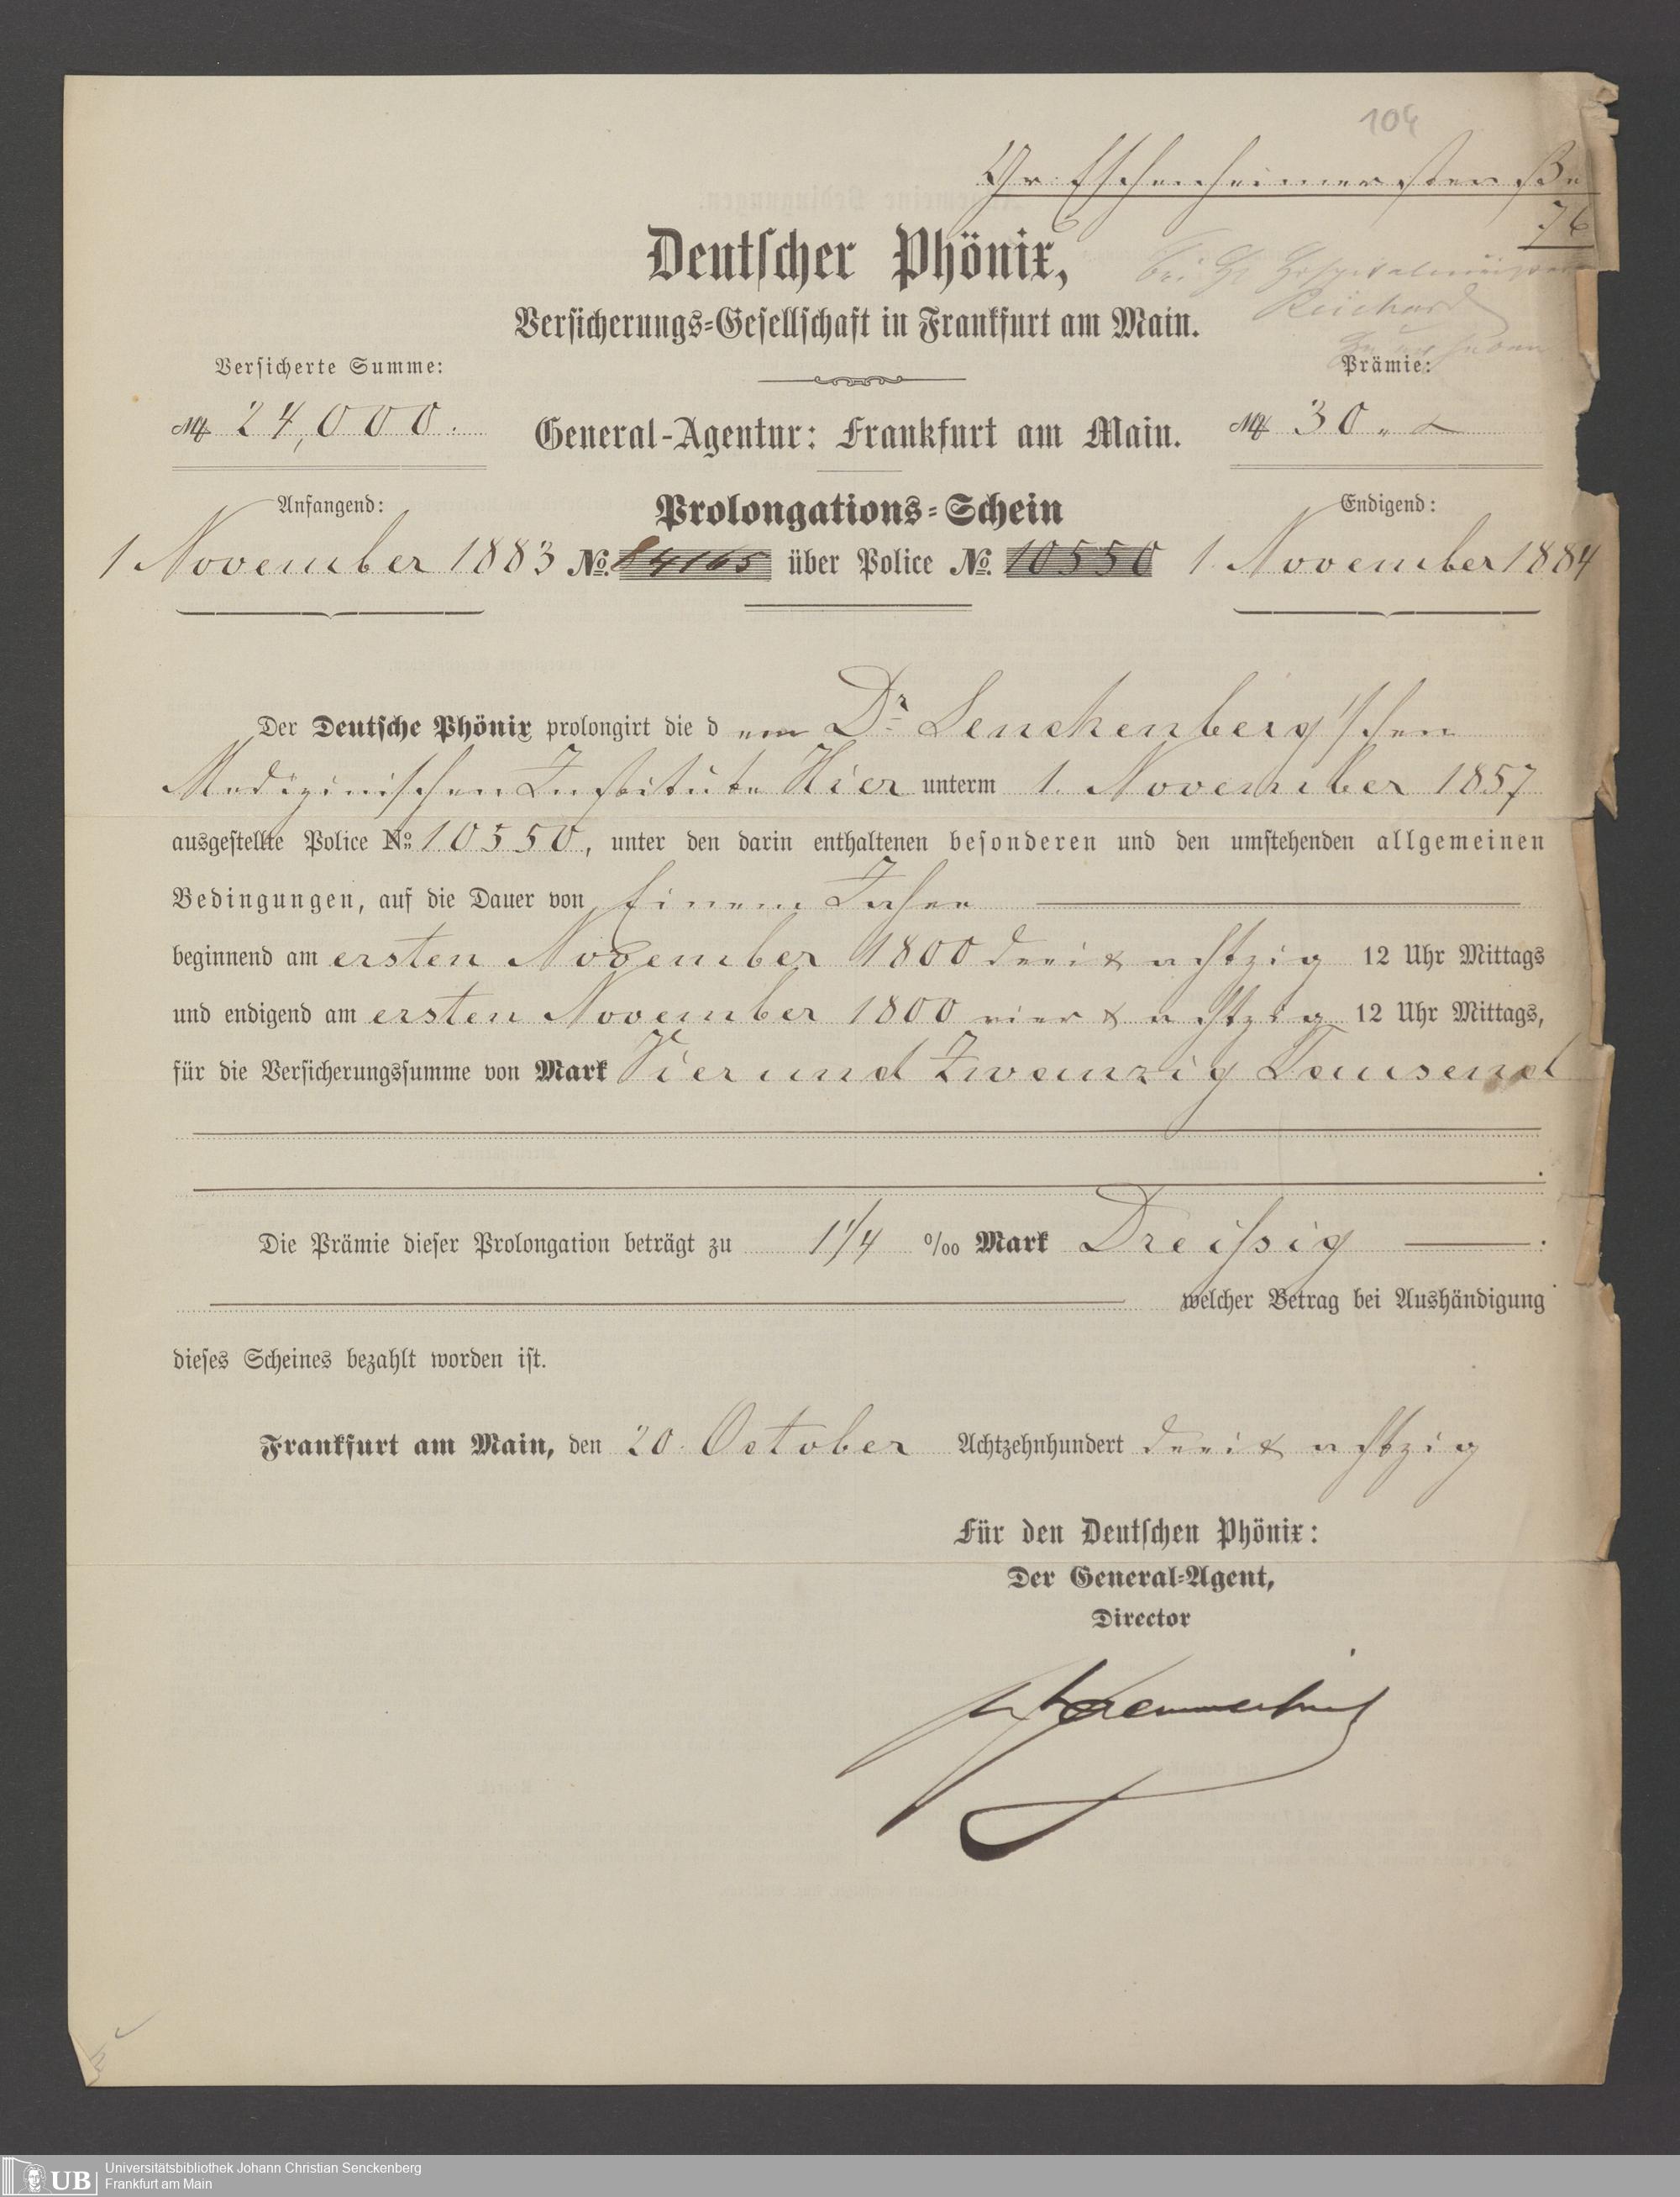 104
Gr: Eschenheimerstraße
76
Deutſcher Phönix,
bei H Hospitalmeister
Reichard
Verſicherungs=Geſellſchaft in Frankfurt am Main.
Verſicherte Summe:
Prämie:
M 24,000.
General-Agentur: Frankfurt am Main.
M 30 „
Anfangend:
Prolongations=Schein
Endigend:
1 November 1883 No. 84165 über Police No. 10550 1 November 1884
Der Deutſche Phönix prolongirt die dem Dr. Senckenberg'ſchen
Medizinischen Institute Hier unterm 1. November 1857
ausgeſtellte Police No. 10550, unter den darin enthaltenen beſonderen und den umſtehenden allgemeinen
Bedingungen, auf die Dauer von Einem Jahre
beginnend am ersten November 1800 drei & achtzig 12 Uhr Mittags
und endigend am ersten November 1800 vier & achtzig 12 Uhr Mittags,
für die Verſicherungsſumme von Mark Vier und Zwanzig Tausend
Die Prämie dieſer Prolongation beträgt zu 1 1/4 ‰ Mark Dreiſsig
welcher Betrag bei Aushändigung
dieſes Scheines bezahlt worden iſt.
Frankfurt am Main, den 20. October Achtzehnhundert drei & achtzig
Für den Deutſchen Phönix:
Der General=Agent,
Director
UB
Universitätsbibliothek Johann Christian Senckenberg
Frankfurt am Main